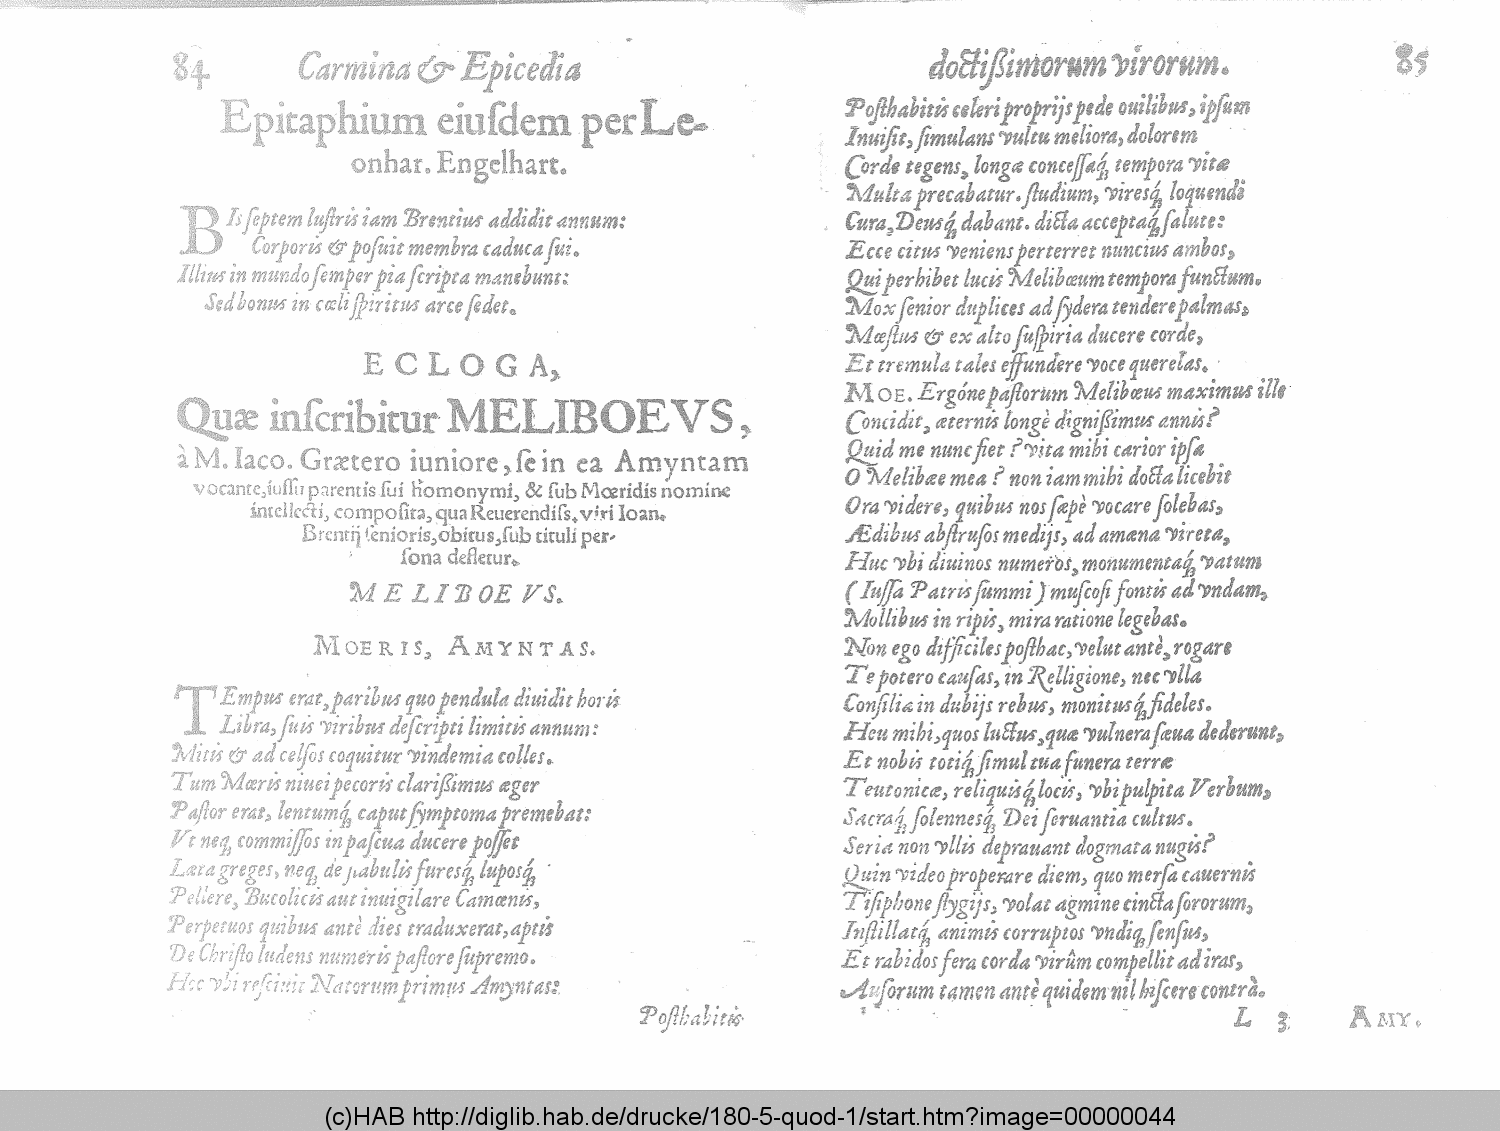 84 Carmina & Epicedia
Epitaphium eiuſdem per Le-
onhar. Engelhart.
BIs ſeptem luſtris iam Brentius addidit annum:
Corporis & poſuit membra caduca ſui.
Illius in mundo ſemper pia ſcripta manebunt:
Sed bonus in cœli ſpiritus arce ſedet.
ECLOGA,
Quæ inſcribitur MELIBOEVS,
à M. Iaco. Grætero iuniore, ſe in ea Amyntam
vocante, iuſſu parentis ſui homonymi, & ſub Mœridis nomine
intellecti, compoſita, qua Reuerendiſs. viri Ioan.
Brentij ſenioris, obitus, ſub tituli per-
ſona defletur.
MELIBOEVS.
MOERIS, AMYNTAS.
TEmpus erat, paribus quo pendula diuidit horis
Libra, ſuis viribus deſcripti limitis annum:
Mitis & ad celſos coquitur vindemia colles.
Tum Mœris niuei pecoris clarißimus æger
Paſtor erat, lentumq́ꝫ caput ſymptoma premebat:
Vt neqꝫ commiſſos in paſcua ducere poſſet
Læta greges, neqꝫ de pabulis furesq́ꝫ luposq́ꝫ
Pellere, Bucolicis aut inuigilare Camœnis,
Perpetuos quibus antè dies traduxerat, aptis
De Chriſto ludens numeris paſtore ſupremo.
Hec vbi reſciuit Natorum primus Amyntas:
Poſthabitis
doctißimorum virorum. 85
Poſthabitis celeri proprijs pede ouilibus, ipſum
Inuiſit, ſimulans vultu meliora, dolorem
Corde tegens, longæ conceſſaq́ꝫ tempora vitæ
Multa precabatur. ſtudium, viresq́ꝫ loquendi
Cura, Deusq́ꝫ dabant. dicta acceptaq́ꝫ ſalute:
Ecce citus veniens perterret nuncius ambos,
Qui perhibet lucis Melibœum tempora functum.
Mox ſenior duplices ad ſydera tendere palmas,
Mœſtus & ex alto ſuſpiria ducere corde,
Et tremula tales effundere voce querelas.
MOE. Ergóne paſtorum Melibœus maximus ille
Concidit, æternis longè dignißimus annis?
Quid me nunc fiet? vita mihi carior ipſa
O Melibœe mea? non iam mihi docta licebit
Ora videre, quibus nos ſæpè vocare ſolebas,
Ædibus abſtruſos medijs, ad amœna vireta,
Huc vbi diuinos numeros, monumentaq́ꝫ vatum
(Iuſſa Patris ſummi) muſcoſi fontis ad vndam,
Mollibus in ripis, mira ratione legebas.
Non ego difficiles poſthac, velut antè, rogare
Te potero cauſas, in Relligione, nec vlla
Conſilia in dubijs rebus, monitusq́ꝫ fideles.
Heu mihi, quos luctus, quæ vulnera ſæua dederunt,
Et nobis totiq́ꝫ ſimul tua funera terræ
Teutonicæ, reliquisq́ꝫ locis, vbi pulpita Verbum,
Sacraq́ꝫ ſolennesq́ꝫ Dei ſeruantia cultus.
Seria non vllis deprauant dogmata nugis?
Quin video properare diem, quo merſa cauernis
Tiſiphone ſtygijs, volat agmine cincta ſororum,
Inſtillatq́ꝫ animis corruptos vndiqꝫ ſenſus,
Et rabidos fera corda virûm compellit ad iras,
Auſorum tamen antè quidem nil hiſcere contrà.
L 3 AMY.
(c)HAB http://diglib.hab.de/drucke/180-5-quod-1/start.htm?image=00000044